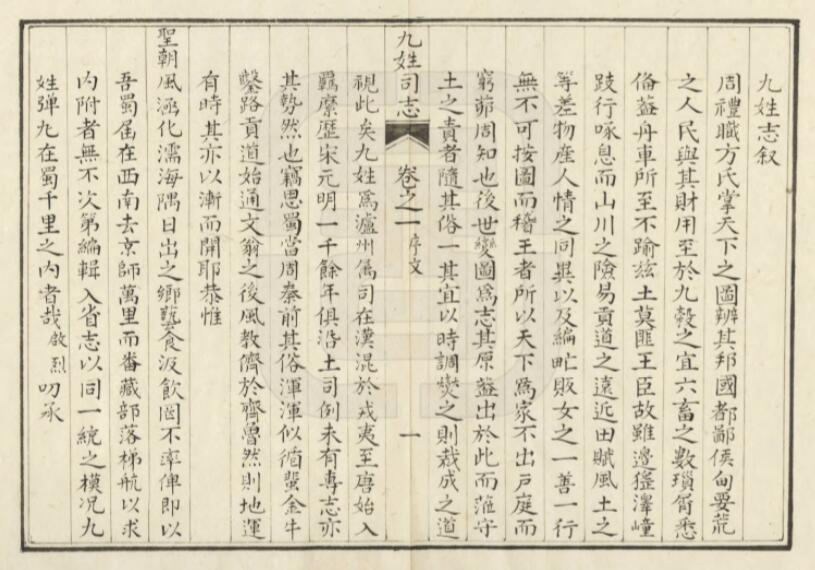 九姓志叙
周禮職方氏掌天下之圖辨其邦國都鄙侯甸要荒
之人民與其財用至於九穀之宜六畜之數瑣屑悉
備蓋舟車所至不踰兹土莫匪王臣故雖邊徼澤幢
跂行喙息而山川之險易貢道之遠近田賦風土之
等差物産人情之同異以及編甿販女之一善一行
無不可按圖而稽王者所以天下爲家不出戸庭而
窮茆周知也後世變圖爲志其原蓋出於此而蒞守
土之責者隨其俗一其宜以時調爕之則裁成之道
九姓司志
卷之一 序文
一
視此矣九姓爲瀘州屬司在漢混於戎夷至唐始入
羈縻歴宋元明一千餘年俱沿土司例未有專志亦
其勢然也竊思蜀當周秦前其俗渾渾似循蜚金牛
鑿路貢道始通文翁之後風教儕於齊魯然則地運
有時其亦以漸而開耶恭惟
聖朝風涵化濡海隅日出之鄉蓺食汲飲罔不率俾即以
吾蜀雋在西南去京師萬里而番藏部落梯航以求
内附者無不次第編輯入省志以同一統之模况九
姓弹丸在蜀千里之内者哉啟烈叨承